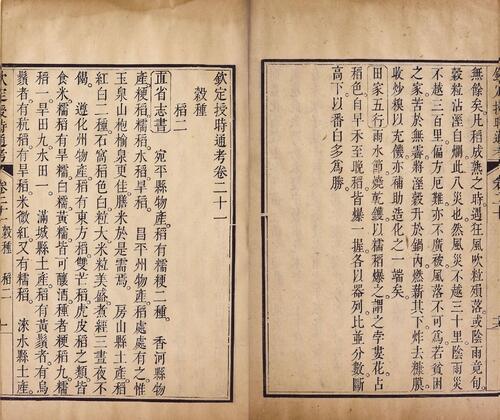 無餘矣凡稻成熟之時遇狂風吹粒殞落或陰雨竟旬
穀粒沾溼自爛此八災也然風災不越三十里陰雨災
不越三百里偏方厄難亦不廣被風落不可爲若貧困
之家苦於無霽將溼穀升於鍋內燃薪其下炸去糠膜
收炒糗以充饑亦補助造化之一端矣
田家五行雨水節燒乾鑊以糯稻爆之謂之孛婁花占
稻色自早禾至晚稻皆爆一握各以器列比並分數斷
高下以番白多爲勝
欽定授時通考卷二十一
穀種
稻二
直省志書 宛平縣物產稻有糯粳二種。 香河縣物
產粳稻糯稻水稻旱稻。 昌平州物產稻處處有之惟
玉泉山栬榆泉更佳膳米於是需焉。 房山縣土產稻
紅白二種石窩稻色白粒大米粒美盛煮經三晝夜不
餲。 遵化州物產稻有東方稻雙芒稻虎皮稻之類皆
食米糯稻有旱糯白糯黃糯皆可釀酒種者粳稻九糯
稻一旱田九水田一。 滿城縣土產稻有黃鬚者有烏
鬚者有秔稻有旱稻米微紅又有糯稻。 淶水縣土產
欽定授時通考 卷二十一 穀種 稻二 一